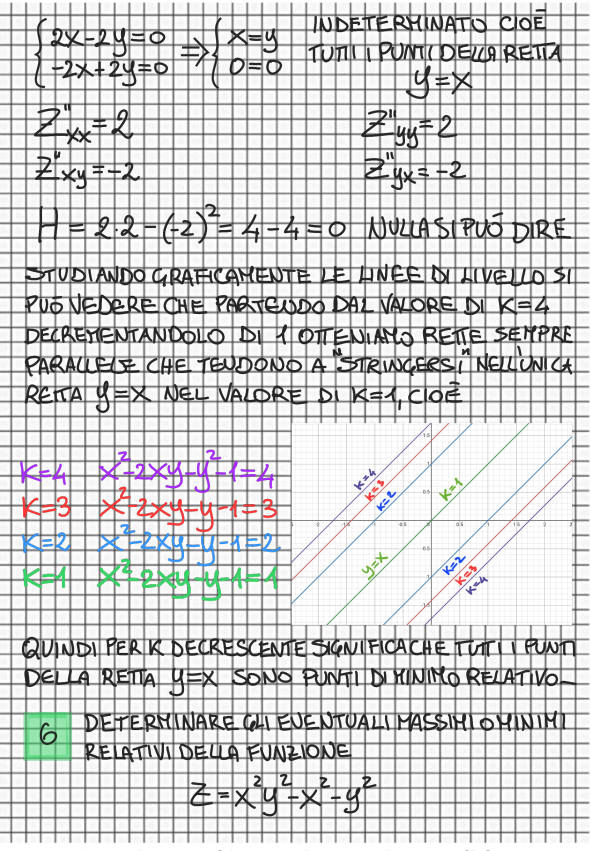 {2x-2y=0 ⇒ {x=y
{-2x+2y=0 {0=0
INDETERMINATO CIOÈ
TUTTI I PUNTI DELLA RETTA
y=x
Z"xx=2 Z"yy=2
Z"xy=-2 Z"yx=-2
H=2·2-(-2)²=4-4=0 NULLA SI PUÒ DIRE
STUDIANDO GRAFICAMENTE LE LINEE DI LIVELLO SI
PUÒ VEDERE CHE PARTENDO DAL VALORE DI K=4
DECREMENTANDOLO DI 1 OTTENIAMO RETTE SEMPRE
PARALLELE CHE TENDONO A "STRINGERSI" NELL'UNICA
RETTA y=x NEL VALORE DI K=1, CIOÈ
K=4 x²-2xy-y²-1=4
K=3 x²-2xy-y-1=3
K=2 x²-2xy-y-1=2
K=1 x²-2xy-y-1=1
K=4
K=3
K=2
K=1
y=x
K=2
K=3
K=4
QUINDI PER K DECRESCENTE SIGNIFICA CHE TUTTI I PUNTI
DELLA RETTA y=x SONO PUNTI DI MINIMO RELATIVO
6 DETERMINARE GLI EVENTUALI MASSIMI O MINIMI
RELATIVI DELLA FUNZIONE
Z=x²y²-x²-y²